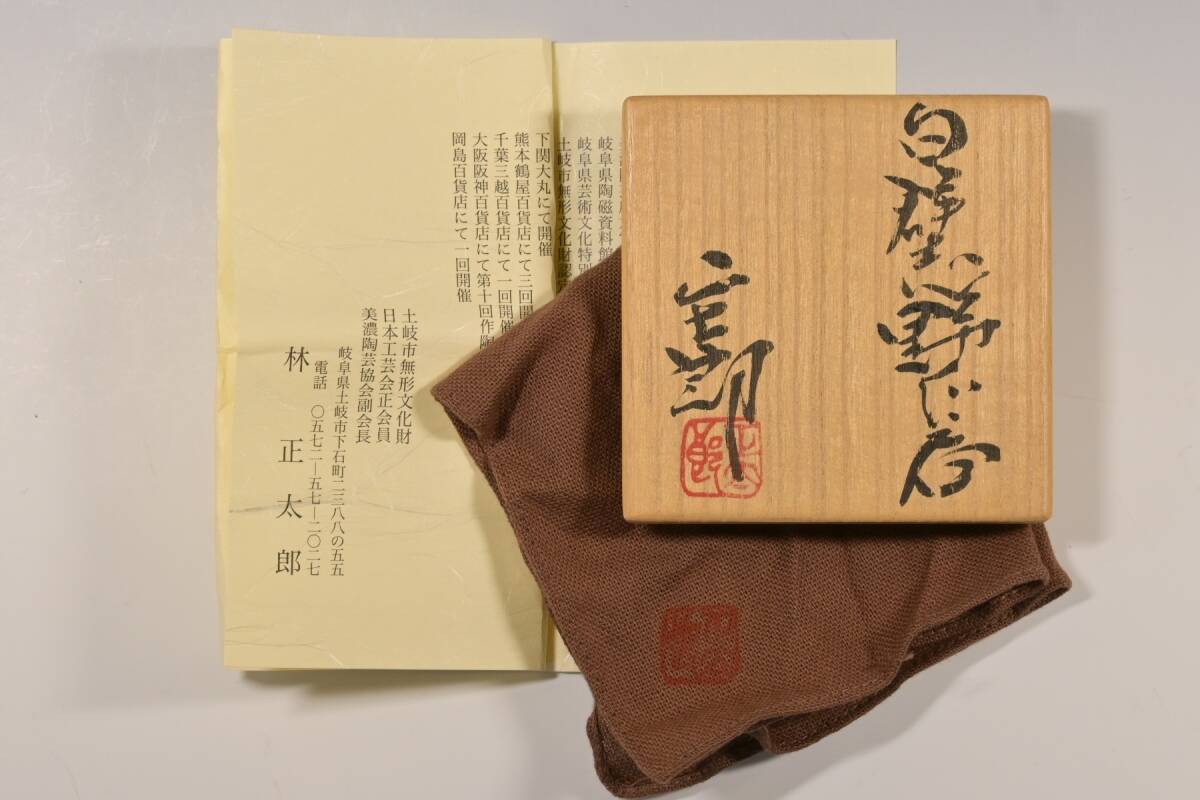 志野
正太郎
岐阜県陶磁資料館
岐阜県芸術文化特別
土岐市無形文化財認
下関大丸にて開催
熊本鶴屋百貨店にて三回開
千葉三越百貨店にて一回開催
大阪阪神百貨店にて第十回作陶
岡島百貨店にて一回開催
土岐市無形文化財
日本工芸会正会員
美濃陶芸協会副会長
岐阜県土岐市下石町二三八八の五五
電話 〇五七二―五七―二〇二七
林 正太郎